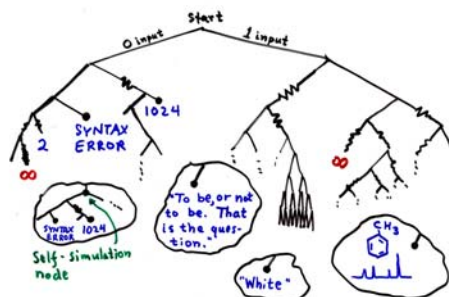 Start
0 input
1 input
1024
2
SYNTAX
ERROR
∞
∞
SYNTAX
ERROR
1024
Self-simulation
node
"To be, or not
to be. That
is the ques-
tion."
"White"
CH3